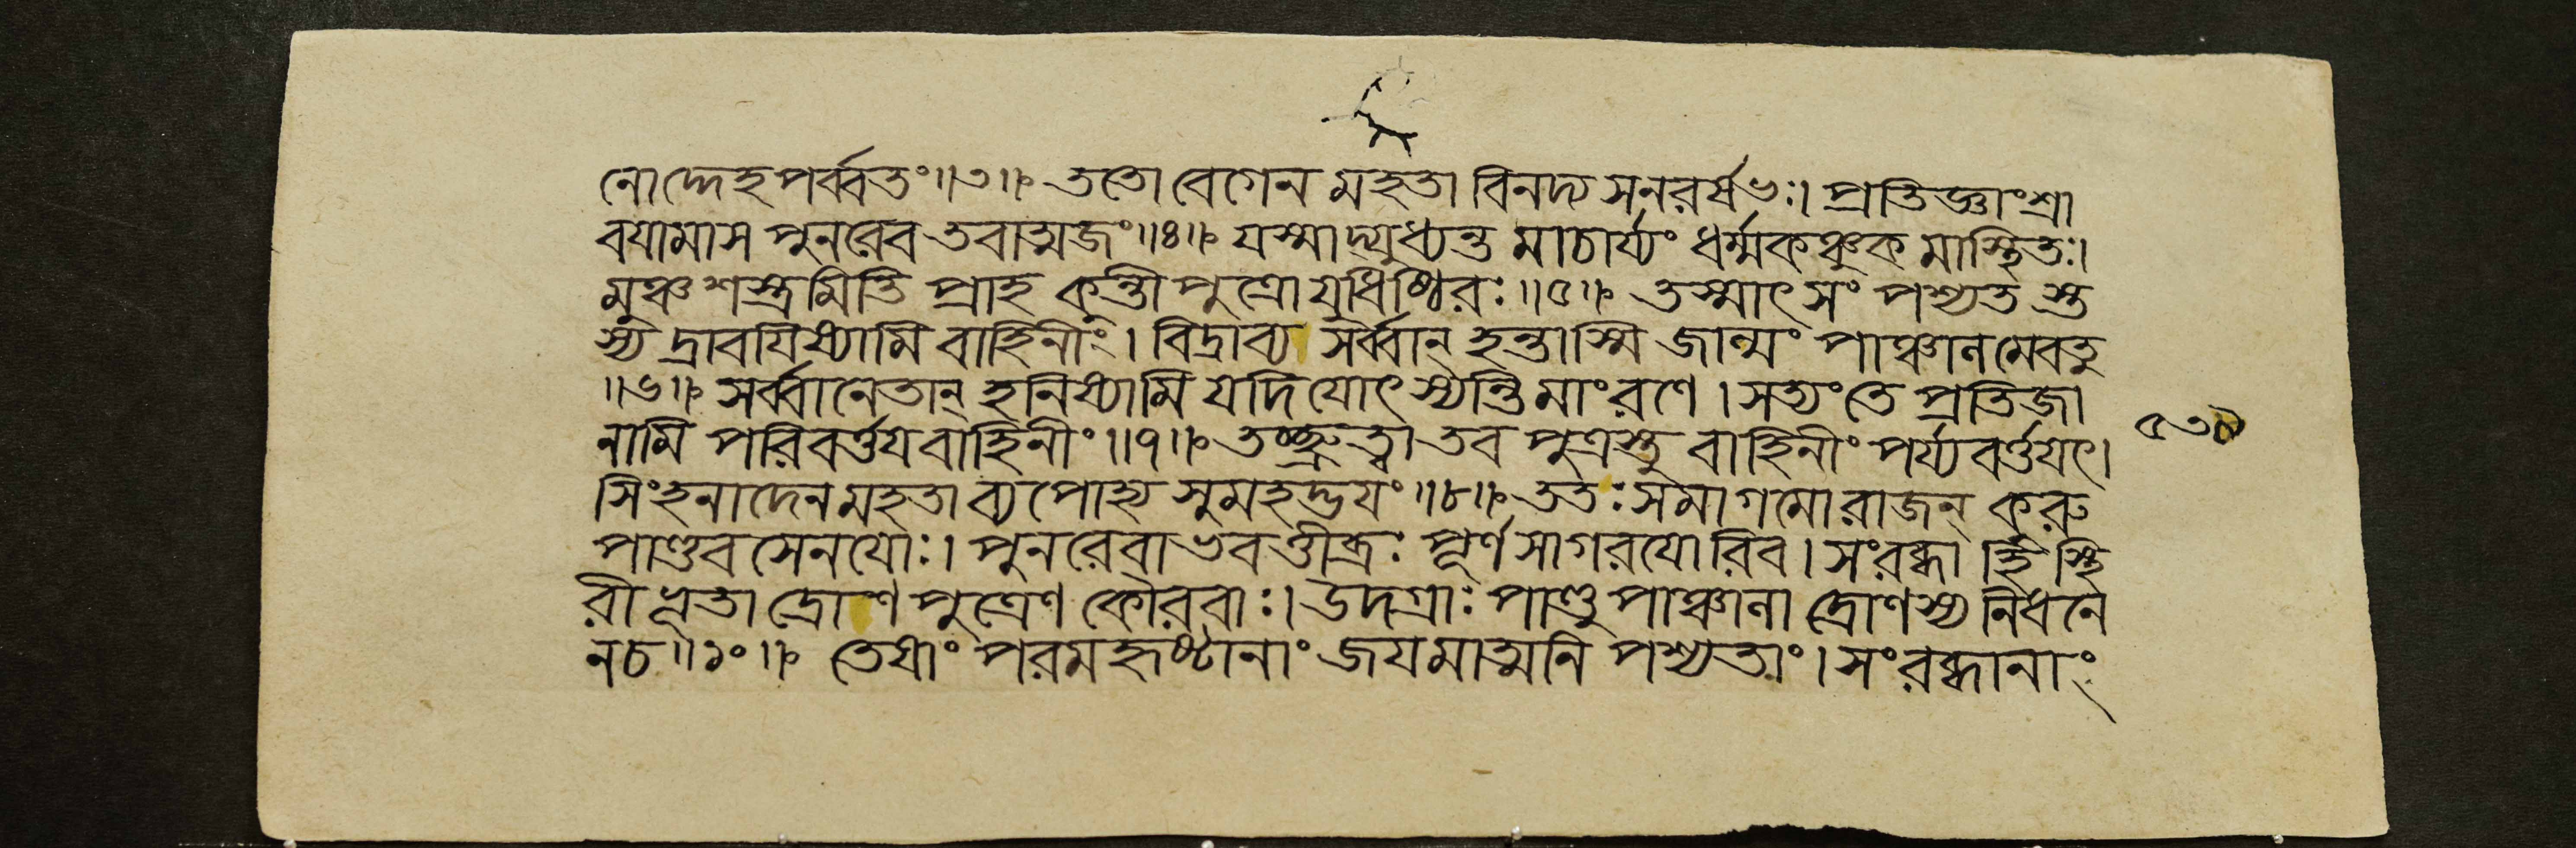 নোদ্দেহপর্ব্বতং॥৩॥ ততো বেগেন মহতা বিনদ্য সনরর্ষভঃ। প্রতিজ্ঞাংশ্রা
বযামাস পুনরেব তবাত্মজং॥৪॥ যস্মাদ্যুধ্যন্ত মাচার্য্যং ধর্ম্মকঞ্চুক মাস্থিতঃ।
মুঞ্চশস্ত্রমিতি প্রাহ কুন্তীপুত্রো যুধিষ্ঠিরঃ॥৫॥ তস্মাৎ সং পশ্যত স্ত
স্য দ্রাবযিষ্যামি বাহিনীং। বিদ্রাব্য সর্ব্বান্ হন্তাস্মি জান্মং পাঞ্চানমেবতু
॥৬॥ সর্ব্বানেতান্ হনিষ্যামি যদি যোৎস্যন্তি মাংরণে। সত্যংতে প্রতিজা
নামি পরিবর্ত্তযবাহিনীং॥৭॥ তচ্ছ্রুত্বা তব পুত্রস্তু বাহিনীং পর্য্যবর্ত্তযৎ।
৫৩৯
সিংহনাদেনমহতা ব্যপোহ্য সুমহদ্ভযং॥৮॥ ততঃ সমাগমোরাজন্ কুরু
পাণ্ডবসেনযোঃ। পুনরেবাভবত্তীব্রঃ পূর্ণসাগরযোরিব। সংরব্ধা হি স্থি
রীভূতা দ্রোণপুত্রেণ কৌরবাঃ। উদগ্রাঃ পাণ্ডুপাঞ্চানা দ্রোণস্য নিধনে
নচ॥১০॥ তেষাং পরমহৃষ্টানাং জযমাত্মনি পশ্যতাং। সংরব্ধানাং